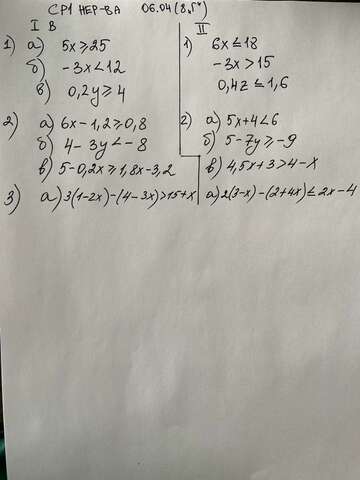 СР1 НЕР-ВА 06.04 (8„Г")
I В
1) а) 5x ≥ 25
б) -3x < 12
в) 0,2y ≥ 4
2) а) 6x - 1,2 ≥ 0,8
б) 4 - 3y < -8
в) 5 - 0,2x ≥ 1,8x - 3,2
3) а) 3(1-2x)-(4-3x)>15+x
II
1) 6x ≤ 18
-3x > 15
0,4z ≤ 1,6
2) а) 5x+4<6
б) 5-7y ≥ -9
в) 4,5x+3>4-x
а) 2(3-x)-(2+4x) ≤ 2x-4